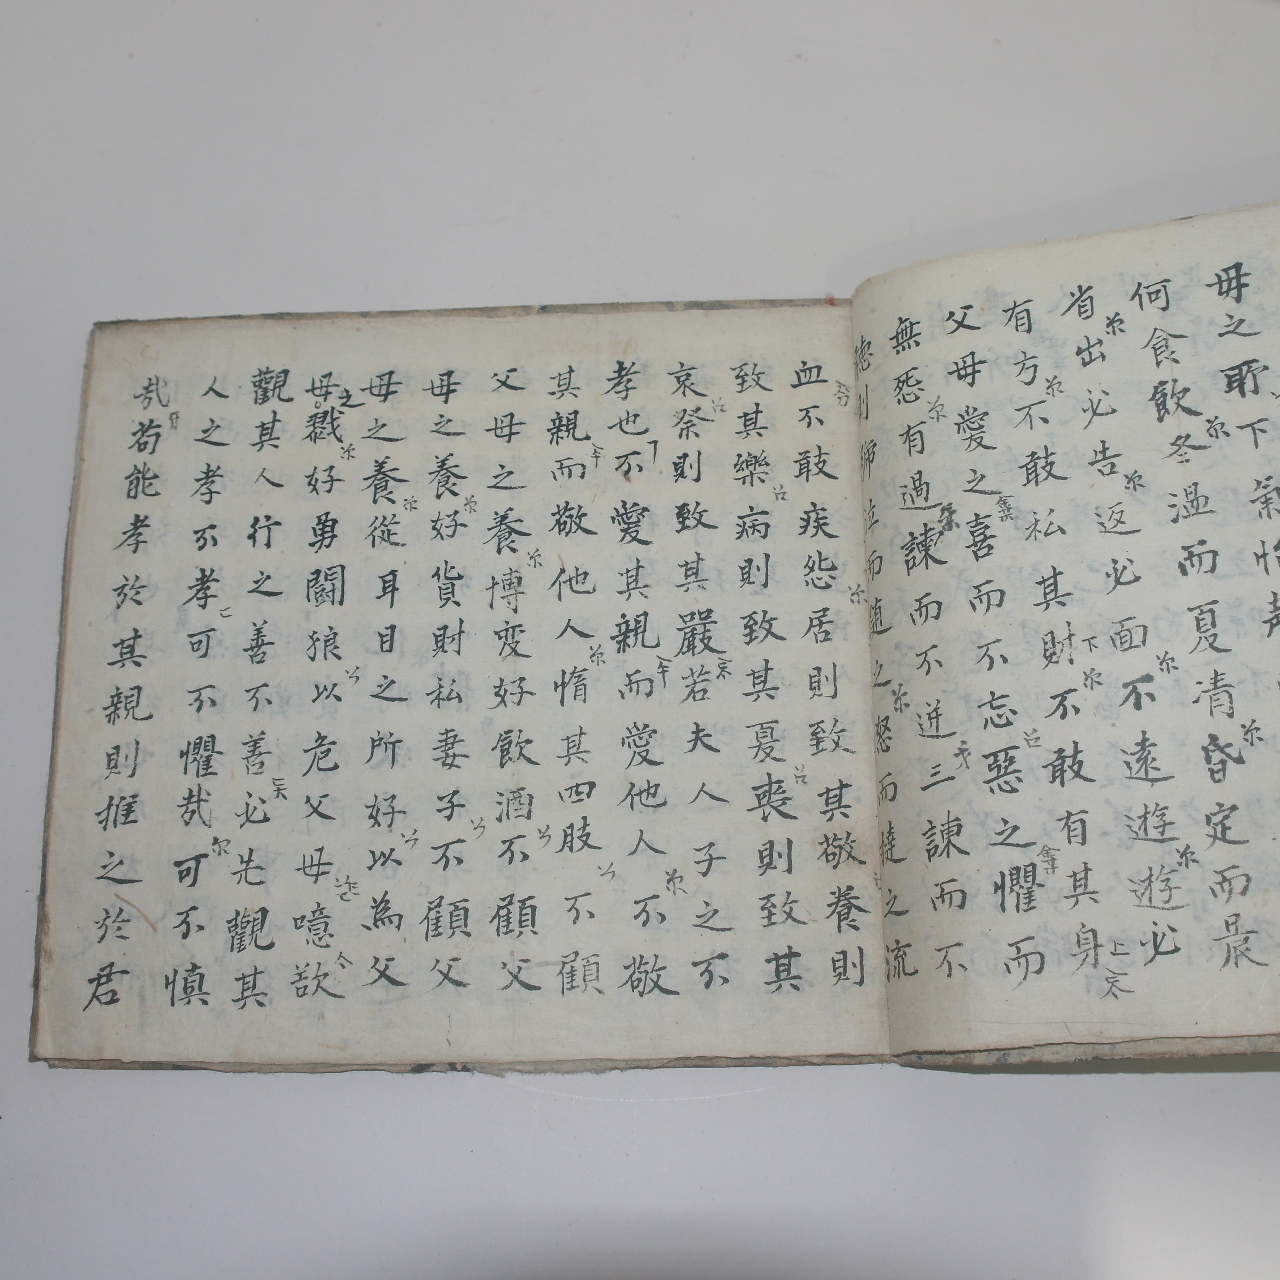 毋之所下氣怡聲
何食飲冬溫而夏凊昏定而晨
省出必告返必面不遠遊遊必
有方不敢私其財不敢有其身
父母愛之喜而不忘惡之懼而
無怨有過諫而不逆三諫而不
聽則號泣而随之怒而撻之流
血不敢疾怨居則致其敬養則
致其樂病則致其憂喪則致其
哀祭則致其嚴若夫人子之不
孝也不愛其親而愛他人不敬
其親而敬他人惰其四肢不顧
父母之養博変好飲酒不顧父
母之養好貨財私妻子不顧父
母之養從耳目之所好以為父
母之戮好勇鬪狼以危父母噫欲
觀其人行之善不善必先觀其
人之孝不孝可不懼哉可不慎
哉苟能孝於其親則推之於君